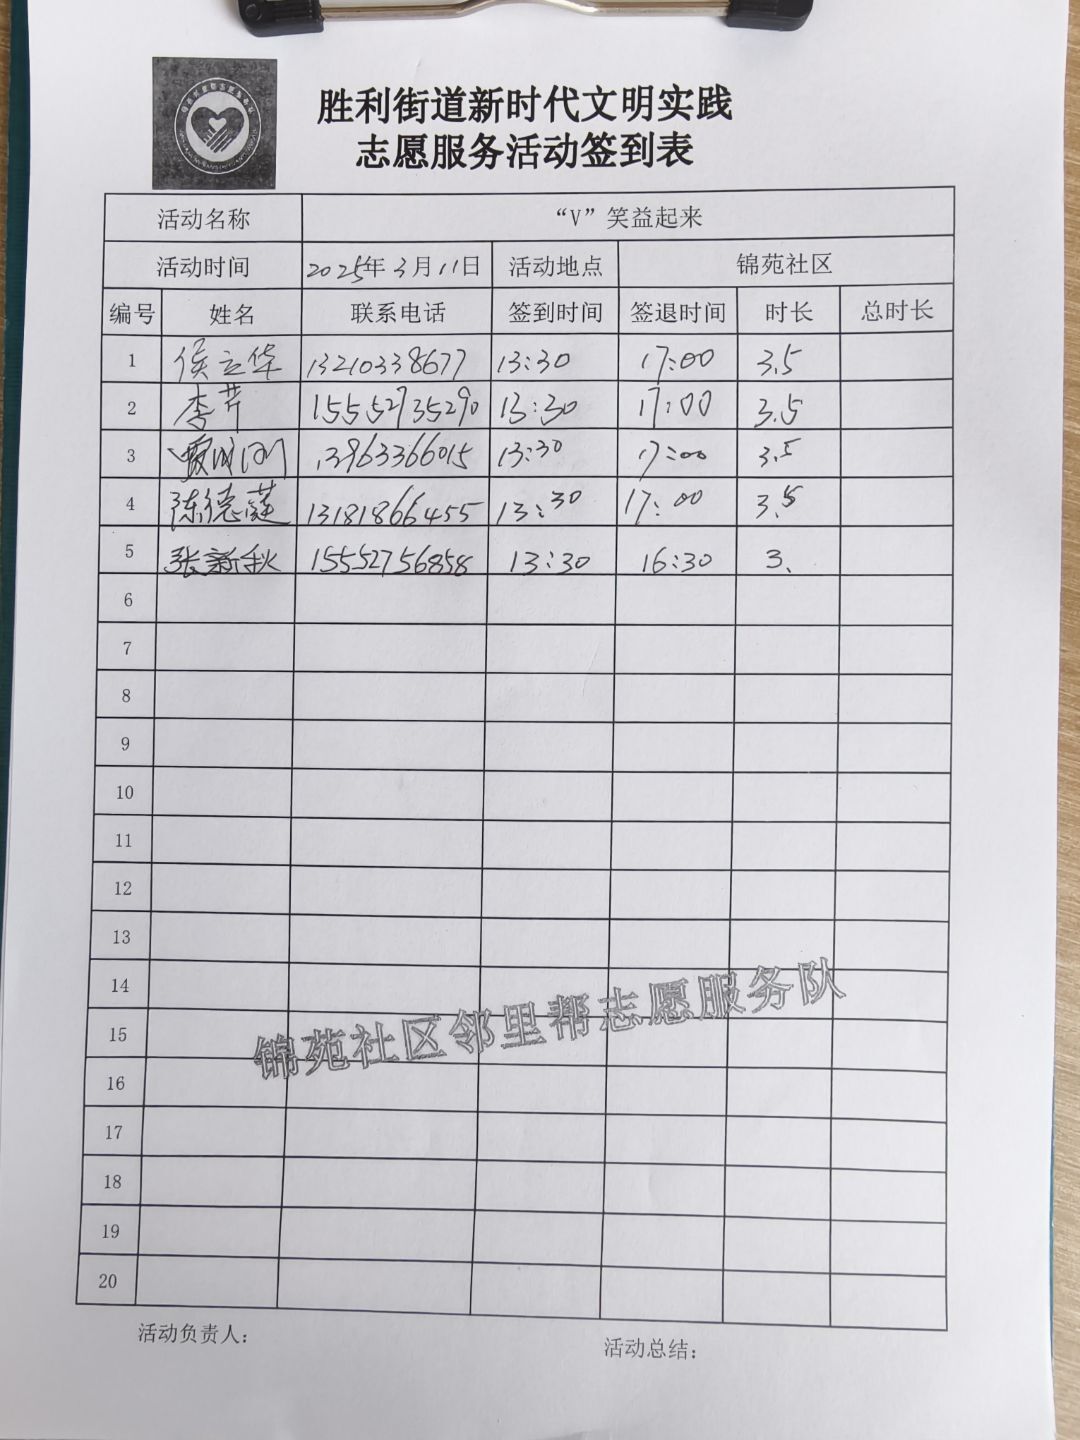 胜利街道新时代文明实践
志愿服务活动签到表
活动名称 “V”笑益起来
活动时间 2025年3月11日 活动地点 锦苑社区
编号 姓名 联系电话 签到时间 签退时间 时长 总时长
1 侯立华 13210338677 13:30 17:00 3.5
2 李芹 15552735290 13:30 17:00 3.5
3 13963366015 13:30 17:00 3.5
4 陈德莲 13181866455 13:30 17:00 3.5
5 张新秋 15552756858 13:30 16:30 3.
6
7
8
9
10
11
12
13
14
锦苑社区邻里帮志愿服务队
15
16
17
18
19
20
活动负责人： 活动总结：